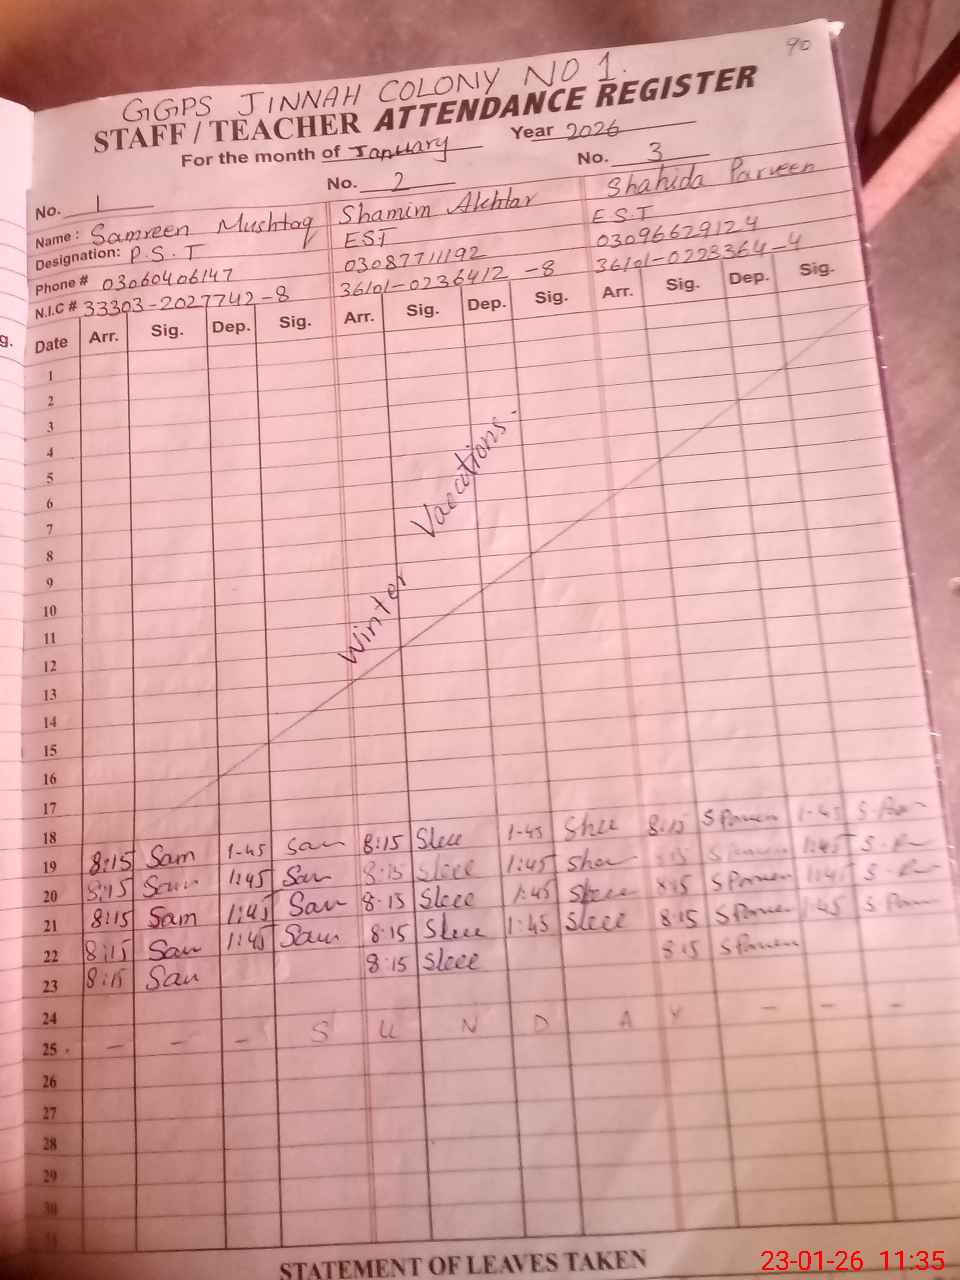 90
GGPS JINNAH COLONY NO 1.
STAFF / TEACHER ATTENDANCE REGISTER
For the month of January Year 2026
No. 1 No. 2 No. 3
Name: Samreen Mushtaq Shamim Akhtar Shahida Parveen
Designation: P.S.T EST E.S.T
Phone # 03060406147 03087711192 03096629124
N.I.C # 33303-2027742-8 36101-0236412-8 36101-0223364-4
g. Date Arr. Sig. Dep. Sig. Arr. Sig. Dep. Sig. Arr. Sig. Dep. Sig.
1
2
3
4
5
6
7
8
9
10
11
12
13
14
15
16
17
Winter Vaecations.
18
19 8:15 Sam 1-45 Sam 8:15 1-45 8:15 1-45
20 8:15 1:45 8:15 1:45 1:45
21 8:15 Sam 1:45 8:15 1:45 8:15 1:45
22 8:15 1:45 8:15 1:45 8:15 1:45
23 8:15 8:15 8:15
24
25 - - - S U N D A Y - - -
26
27
28
29
30
31
STATEMENT OF LEAVES TAKEN
23-01-26 11:35